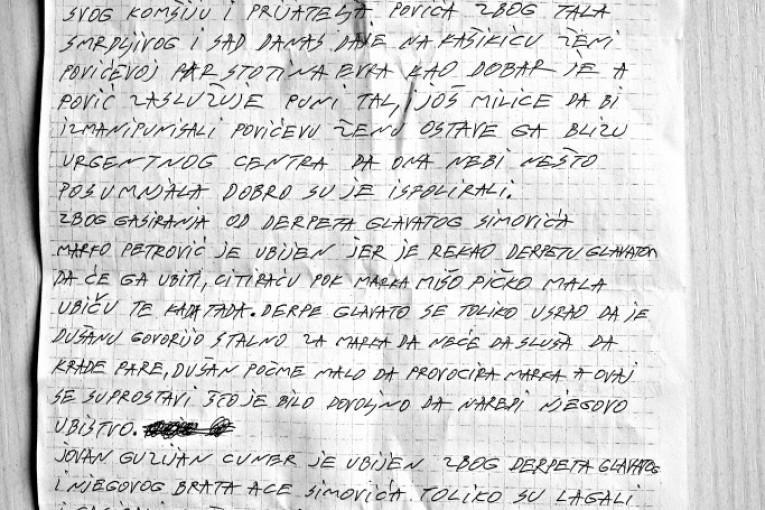 SVOG KOMŠIJU I PRIJATELJA POVIĆA ZBOG TALA
SMRDLJIVOG I SAD DANAS DAJE NA KAŠIKICU ŽENI
POVIĆEVOJ PAR STOTINA EVRA KAO DOBAR JE A
POVIĆ ZASLUŽUJE PUNI TAL, I JOŠ MILICE DA BI
IZMANIPUNISALI POVIĆEVU ŽENU OSTAVE GA BLIZU
URGENTNOG CENTRA DA ONA NEBI NEŠTO
POSUMNJALA DOBRO SU JE ISFOLIRALI.
ZBOG GASIRANJA OD DERPETA GLAVATOG SIMOVIĆA
MARKO PETROVIĆ JE UBIJEN JER JE REKAO DERPETU GLAVATOM
DA ĆE GA UBITI, CITIRAĆU POK MARKA MIŠO PIČKO MALA
UBIĆU TE KADATADA. DERPE GLAVATO SE TOLIKO USRAO DA JE
DUŠANU GOVORIJO STALNO ZA MARKA DA NEĆE DA SLUŠA DA
KRADE PARE, DUŠAN POČME MALO DA PROVOCIRA MARKA A OVAJ
SE SUPROSTAVI ŠTO JE BILO DOVOLJNO DA NAREDI NJEGOVO
UBISTVO.
JOVAN GUZIJAN CUMBR JE UBIJEN ZBOG DERPETA GLAVATOG
I NJEGOVOG BRATA ACE SIMOVIĆA. TOLIKO SU LAGALI